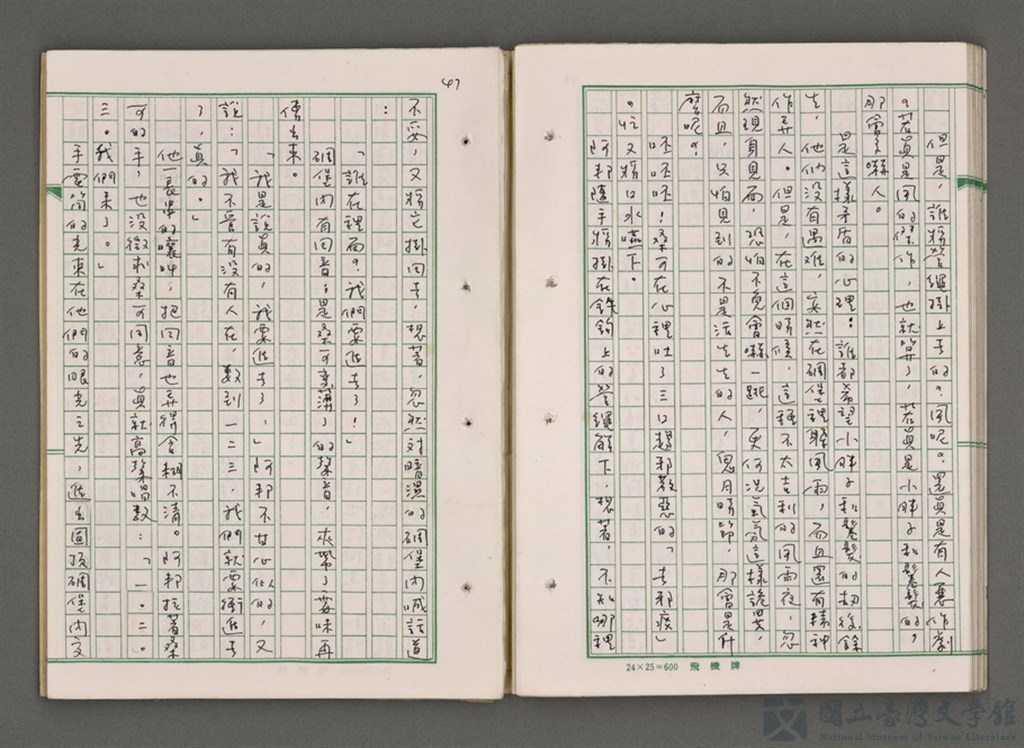 但是，誰將營繩掛上去的？風呢？還真是有人惡作劇
？若真是風的傑作，也就算了，若真是小胖子和鬈髮的，
那會多嚇人。
是這樣矛盾的心理：誰都希望小胖子和鬈髮的劫後餘
生，他們沒有遇難，安然在碉堡裡躲風雨，而且還有精神
作弄人。但是，在這個時候，這種不太吉利的風雨夜，忽
然現身見面，恐怕不免會嚇一跳，更何況氣氛這樣詭異，
而且，只怕見到的不是活生生的人，鬼月時節，那會是什
麼呢？
呸呸呸！桑可在心裡吐了三口趨邪救惡的「去邪痰」
。忙又將口水嚥下。
阿邦隨手將掛在鉄鉤上的營繩解下，想著，不知哪裡
47
不妥，又將它掛回去，想著，忽然對暗濕的碉堡內喊話道
：
「誰在裡面？我們要進去了！」
碉堡內有回音，是桑可變薄了的聲音，夾帶了霉味再
傳出來。
「我是說真的，我要進去了，」阿邦不甘心似的，又
說：「我不管有沒有人在，數到一二三，我們就要衝進去
了，真的。」
他一長串的嚷呼，把回音也弄得含糊不清。阿邦拉著桑
可的手，也沒徵求桑可同意，真就高聲唱數：「一。二。
三。我們來了。」
手電筒的光束在他們的眼光之先，進去圓頂碉堡內交
24×25=600 飛機牌
國立臺灣文學館
National Museum of Taiwan Literature